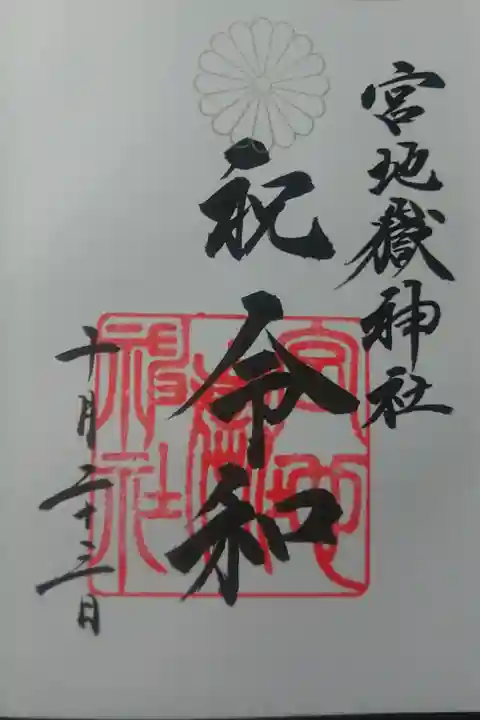 宮地嶽神社
祝令和
十月二十三日
宮地
嶽
神社